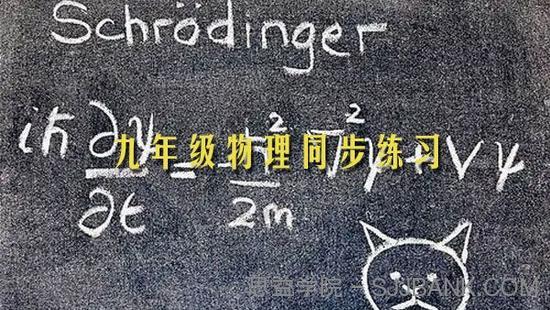 Schrödinger
iħ ∂ψ/∂t = ħ²/2m ∇²ψ + Vψ
九年级物理同步练习
学院 - SJJBANK.COM